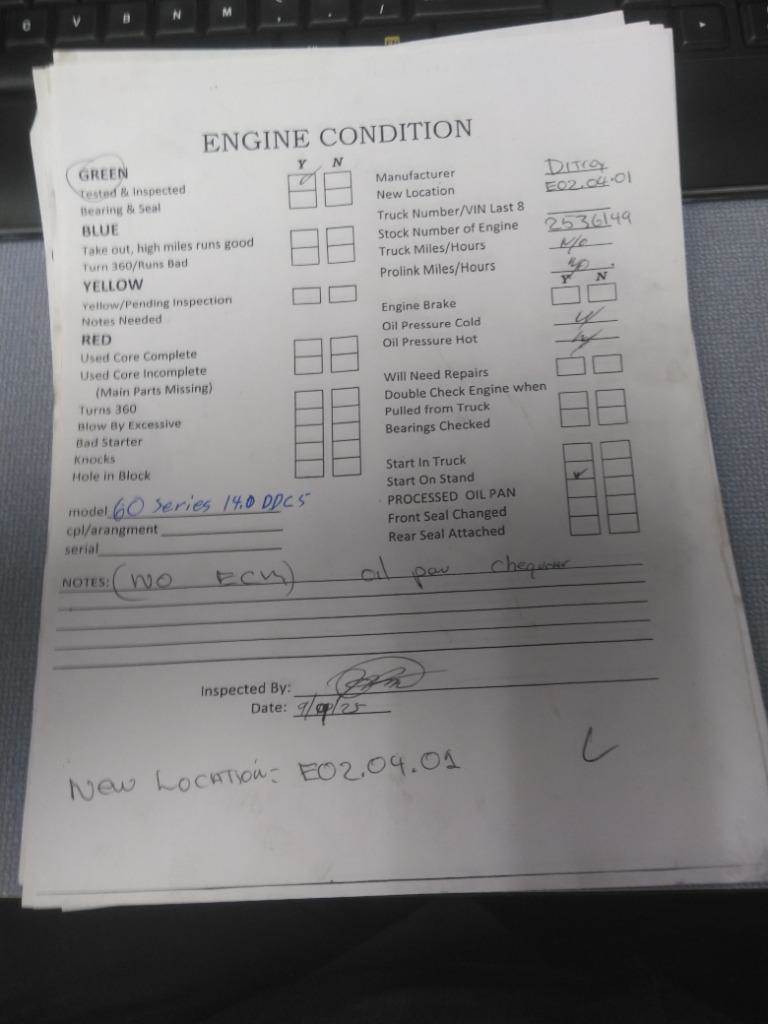 ENGINE CONDITION
Y N
GREEN
Tested & Inspected
Bearing & Seal
BLUE
Take out, high miles runs good
Turn 360/Runs Bad
YELLOW
Yellow/Pending Inspection
Notes Needed
RED
Used Core Complete
Used Core Incomplete
(Main Parts Missing)
Turns 360
Blow By Excessive
Bad Starter
Knocks
Hole in Block
model 60 Series 14.0 DDC5
cpl/arangment
serial
Manufacturer
New Location E02.04.01
Truck Number/VIN Last 8
Stock Number of Engine 2536149
Truck Miles/Hours
Prolink Miles/Hours
Y N
Engine Brake
Oil Pressure Cold
Oil Pressure Hot
Will Need Repairs
Double Check Engine when
Pulled from Truck
Bearings Checked
Start In Truck
Start On Stand
PROCESSED OIL PAN
Front Seal Changed
Rear Seal Attached
NOTES: (NO ECM) oil pan
Inspected By:
Date:
New Location: E02.04.01
B N M , . /